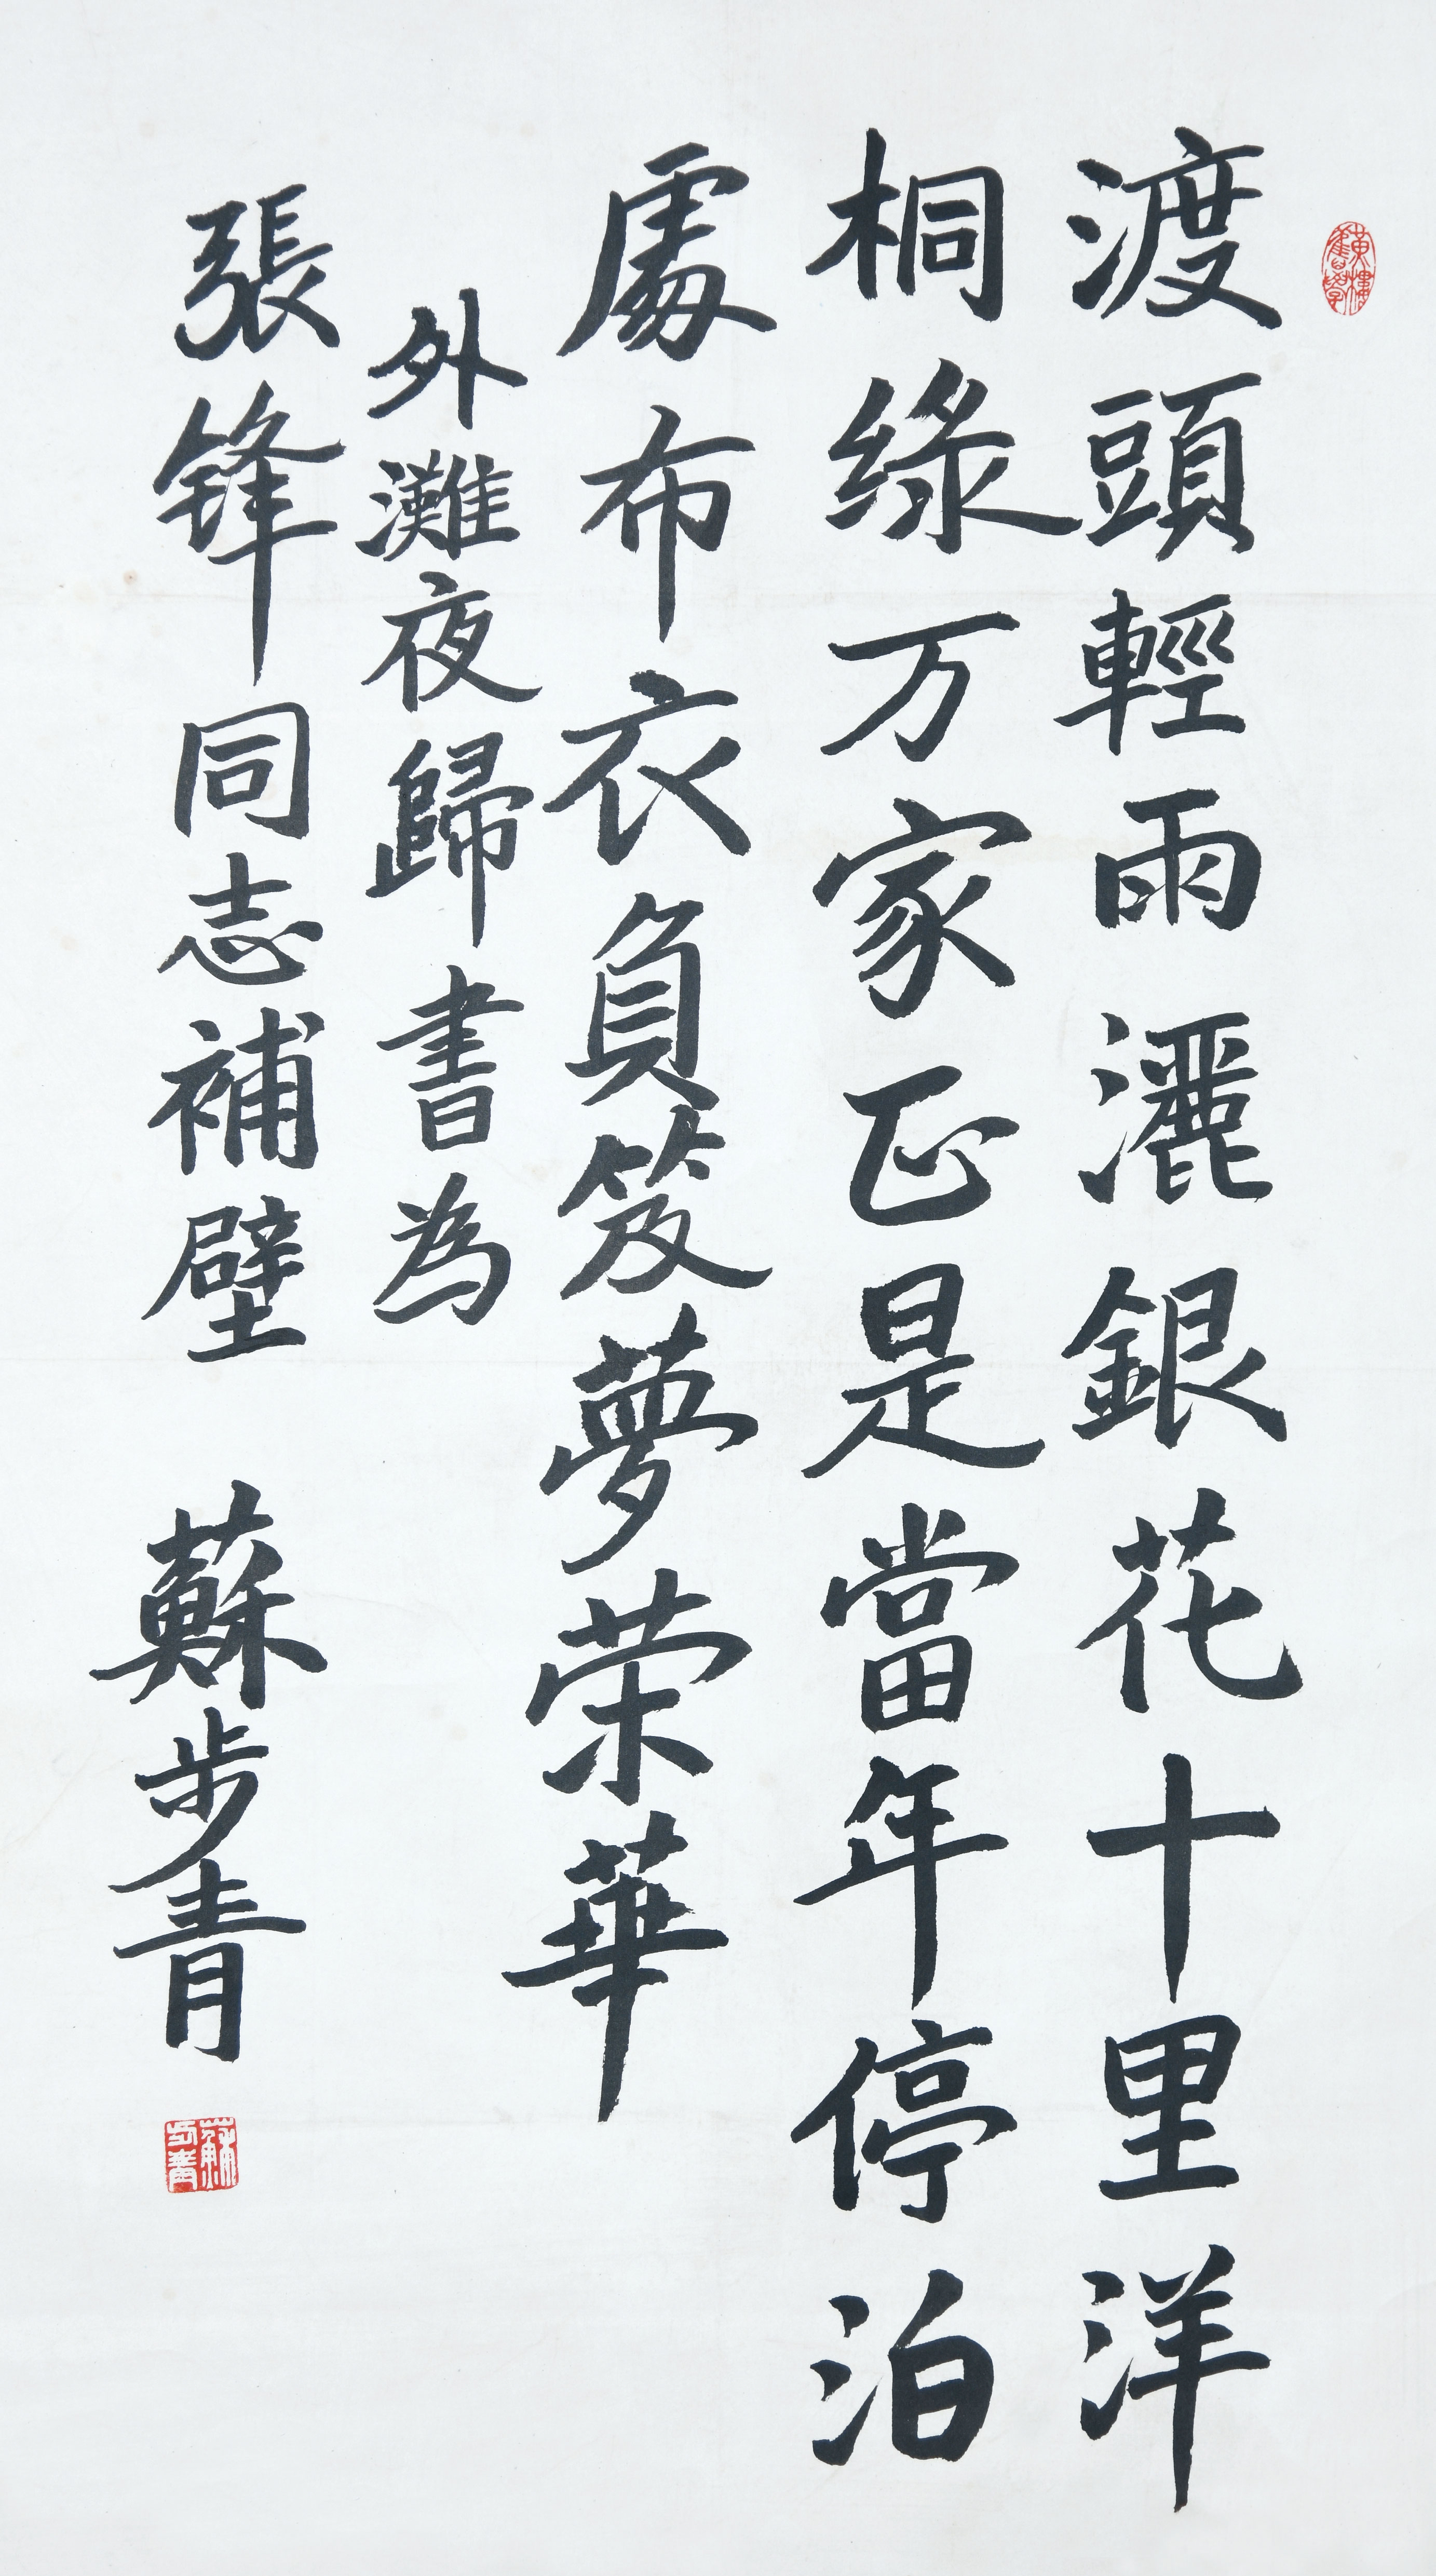 渡頭輕雨灑銀花十里洋
桐綠万家正是當年停泊
處布衣負笈夢荣華
外灘夜歸書為
張锋同志補壁 蘇步青
蘇步青